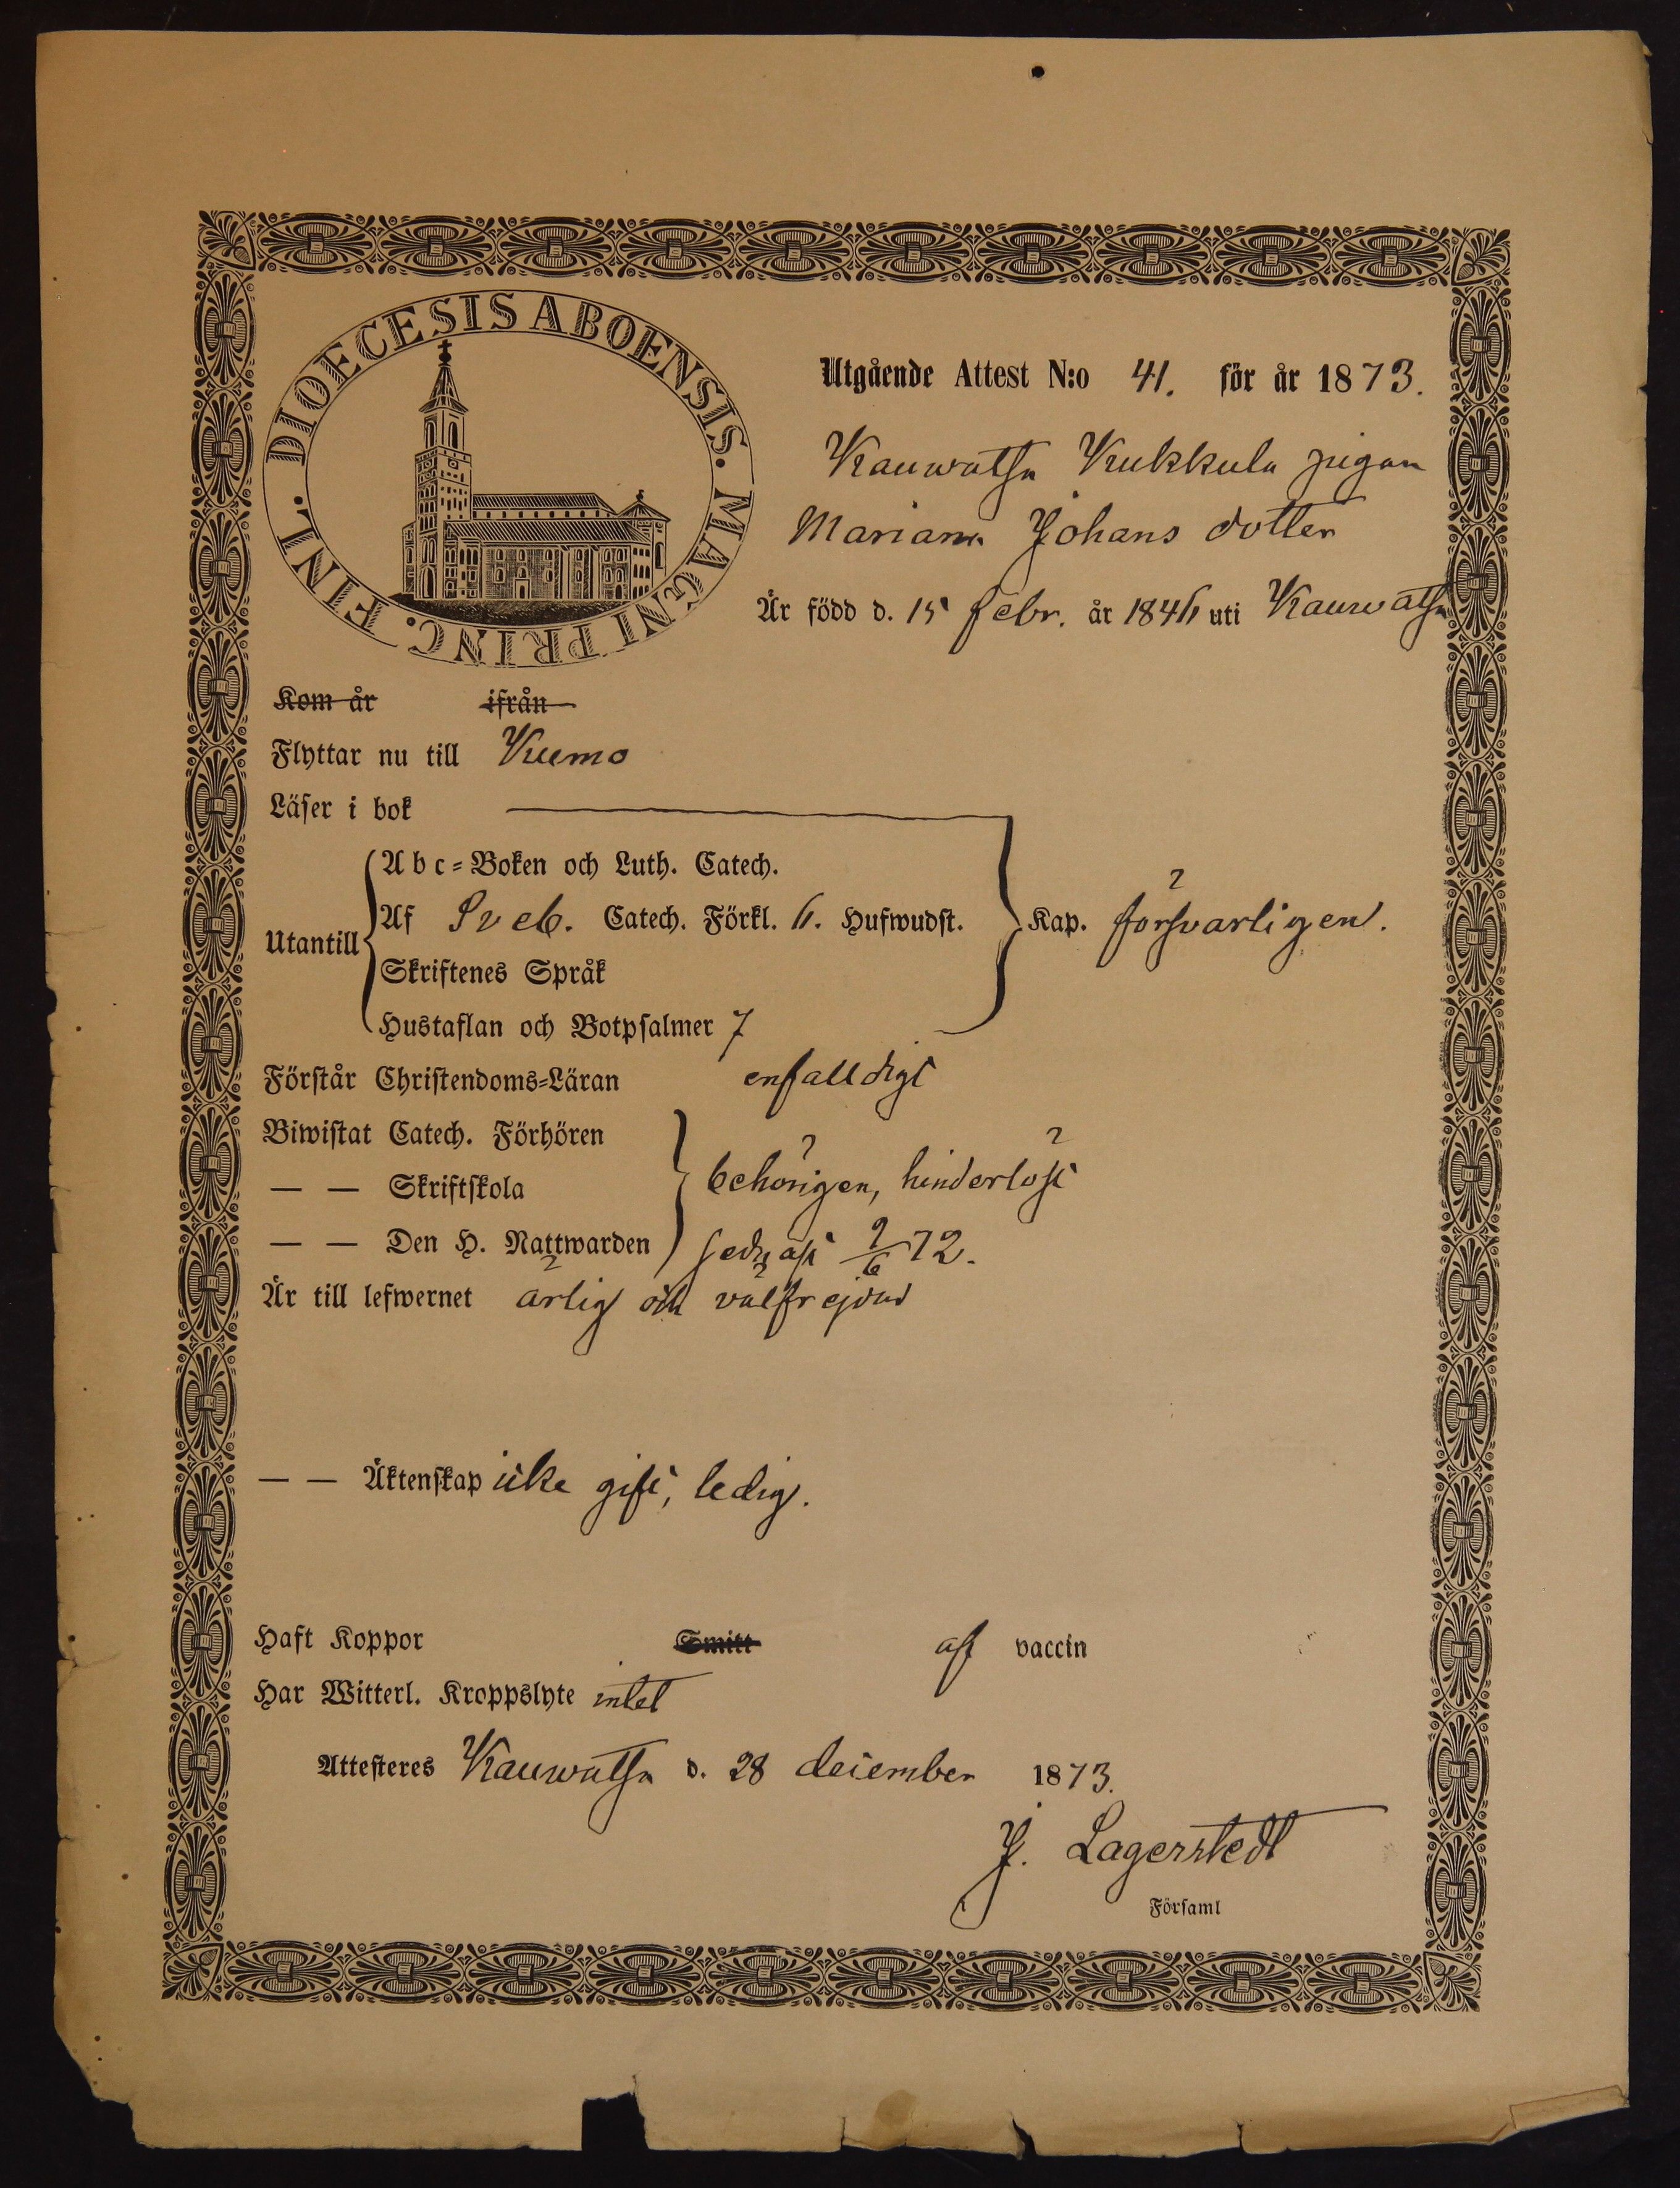 DIOECESIS ABOENSIS. MAGNI PRINC. FINL.
Utgående Attest N:o 41. för år 1873.
Kauwatsa Kukkula pigan
Mariana Johans dotter
Är född d. 15 febr. år 1846 uti Kauwatsa
Kom år ifrån
Flyttar nu till Kumo
Läser i bok
Abc-Boken och Luth. Catech.
Utantill Af Sveb. Catech. Förkl. 6. Hufwudst. Kap. försvarligen.
Skriftenes Språk
Hustaflan och Botpsalmer 7
Förstår Christendoms-Läran enfalldigt
Biwistat Catech. Förhören
— — Skriftskola behörigen, hinderlöst
— — Den H. Nattwarden sednast 9/6 72.
Är till lefwernet ärlig och välfrejdad
— — Äktenskap icke gift, ledig.
Haft Koppor Smitt af vaccin
Har Witterl. Kroppslyte intet
Attesteres Kauwatsa d. 28 december 1873.
J. Lagerstedt
Församl